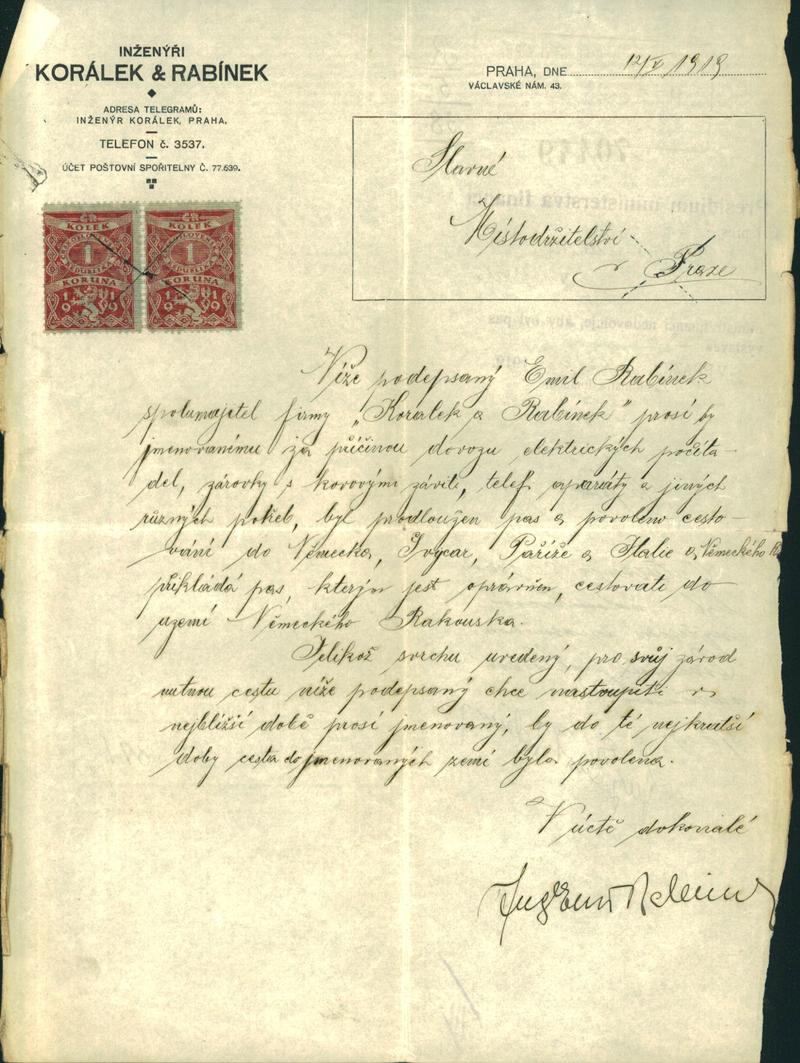 INŽENÝŘI
KORÁLEK & RABÍNEK
ADRESA TELEGRAMŮ:
INŽENÝR KORÁLEK, PRAHA.
TELEFON č. 3537.
ÚČET POŠTOVNÍ SPOŘITELNY Č. 77.639.
PRAHA, DNE 12/V 1919
VÁCLAVSKÉ NÁM. 43.
KOLEK
1
KORUNA
1919
KOLEK
1
KORUNA
1919
Slavné
Místodržitelství
Praze
Níže podepsaný Emil Rabínek
spolumajitel firmy „Koralek a Rabínek" prosí by
jmenovanímu za příčinou dovozu elektrických počíta-
del, žárovky s kovovými závity, telef. aparáty a jiných
různých potřeb, byl prodloužen pas a povoleno cesto-
vání do Německa, Švýcar, Paříže a Italie a Německého
přikládá pas, kterým jest oprávněn, cestovati do
území Německého Rakouska.
Jelikož svrchu uvedený, pro svůj závod
nutnou cestu níže podepsaný chce nastoupiti v
nejbližší době prosí jmenovaný, by do té nejkratší
doby cesta do jmenovaných zemí byla povolena.
V úctě dokonalé
Ing Emil Rabínek